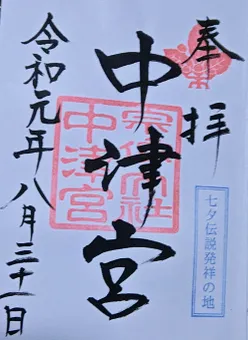 奉拝
中津宮
宗像大社
中津宮
七夕伝説発祥の地
令和元年八月三十一日